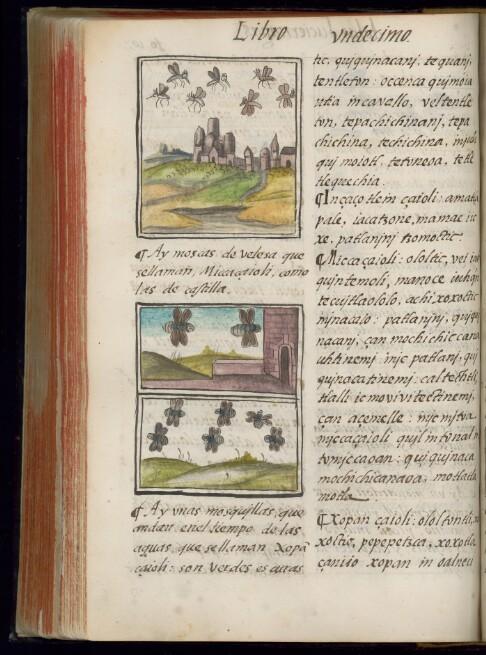 Libro vndecimo.
¶ Ay moscas de velesa que
sellaman, Miccaçaioli, como
las de castilla.
¶ Ay vnas mosquillas, que
andan enel tiempo de las
aguas que sellaman xopā
çaioli: son verdes escuras
tic, quiquinacanj: tequanj,
tentleton: occenca qujmoia
in cavallo, vel tentle
ton, tepachichinanj, tepa
chichina, techichina,
qui moiotl, tetoneoa, tetle
tlequechia.
¶ Inçaçotlein çaioli: amatla
pale, iacatzone, mamae ic
xe, patlanjnj tzomoctic.
¶ Miccaçaioli: ololtic, vei
quintemoli, manoce iuhqn
tecuitlaololo, achi xoxoctic
njnacaio: patlanjnj, quiqui
nacanj, çan mochichiccana
uhtinemj injc patlanj, qui
quinacatinemj: caltechtli,
tlalli ic movivitectinemj,
çan acemelle: injc mitva
miccaçaioli quil intinal
tvmiccaoan: quiquinaca
mochichicanaoa, motlatla
motla.
¶ Xopan çaioli: ololtontli,
xoctic, pepepetzca, xoxotla,
çanijo xopan in oalneci